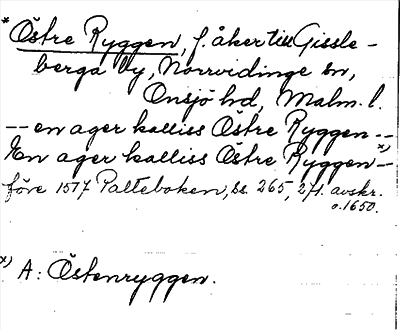 * Östre Ryggen, f. åker till Gissle-
berga by, Norrvidinge sn,
Onsjö hd, Malm. l.
-- en ager kalliss Östre Ryggen --
En ager kalliss Östre Ryggen x) --
före 1517 Palteboken, ss. 265, 271. avskr.
o. 1650.
x) A: Östenryggen.